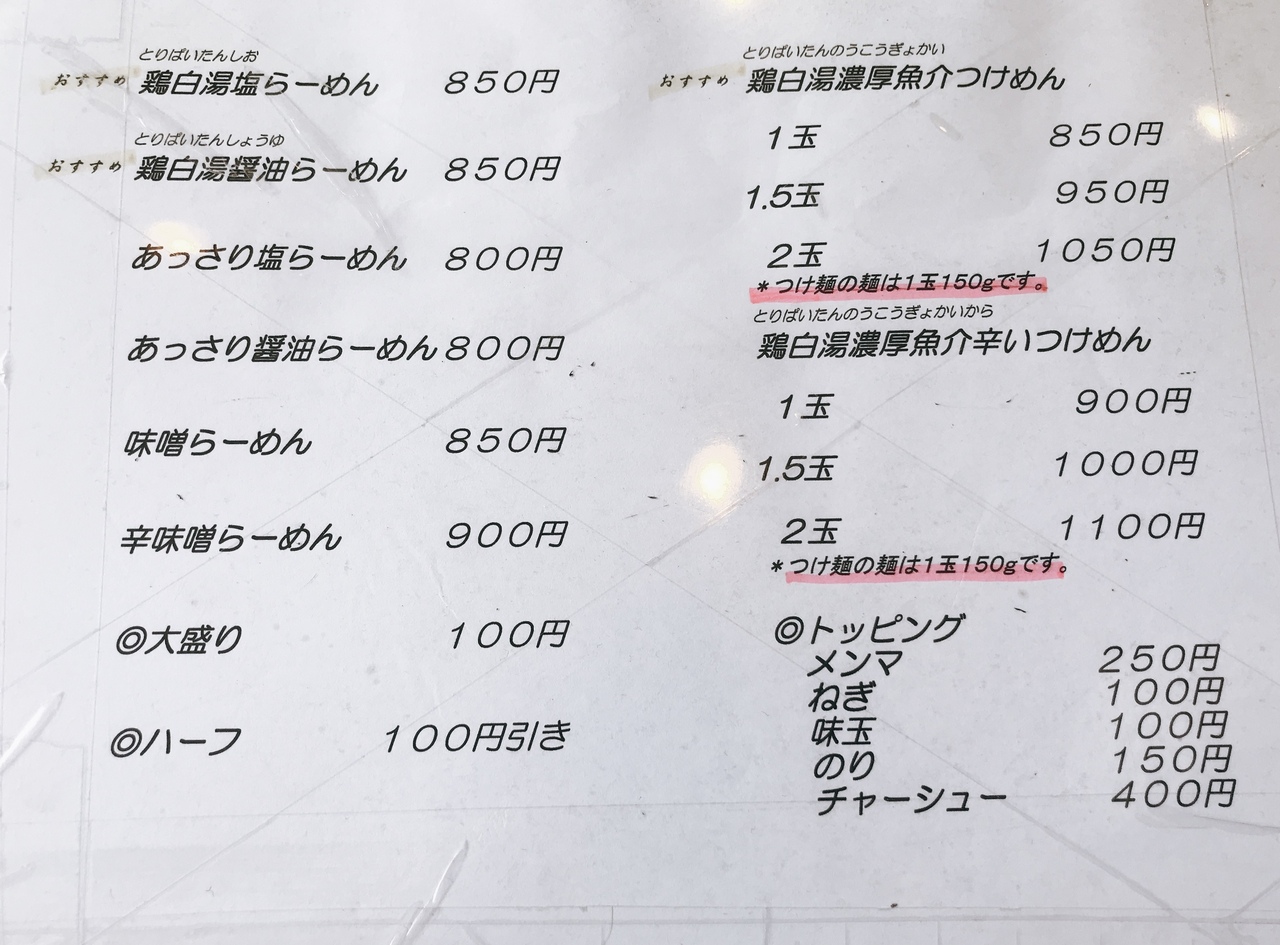 とりぱいたんしお
おすすめ 鶏白湯塩らーめん 850円
とりぱいたんしょうゆ
おすすめ 鶏白湯醤油らーめん 850円
あっさり塩らーめん 800円
あっさり醤油らーめん 800円
味噌らーめん 850円
辛味噌らーめん 900円
◎大盛り 100円
◎ハーフ 100円引き
とりぱいたんのうこうぎょかい
おすすめ 鶏白湯濃厚魚介つけめん
1玉 850円
1.5玉 950円
2玉 1050円
*つけ麺の麺は1玉150gです。
とりぱいたんのうこうぎょかいから
鶏白湯濃厚魚介辛いつけめん
1玉 900円
1.5玉 1000円
2玉 1100円
*つけ麺の麺は1玉150gです。
◎トッピング
メンマ 250円
ねぎ 100円
味玉 100円
のり 150円
チャーシュー 400円